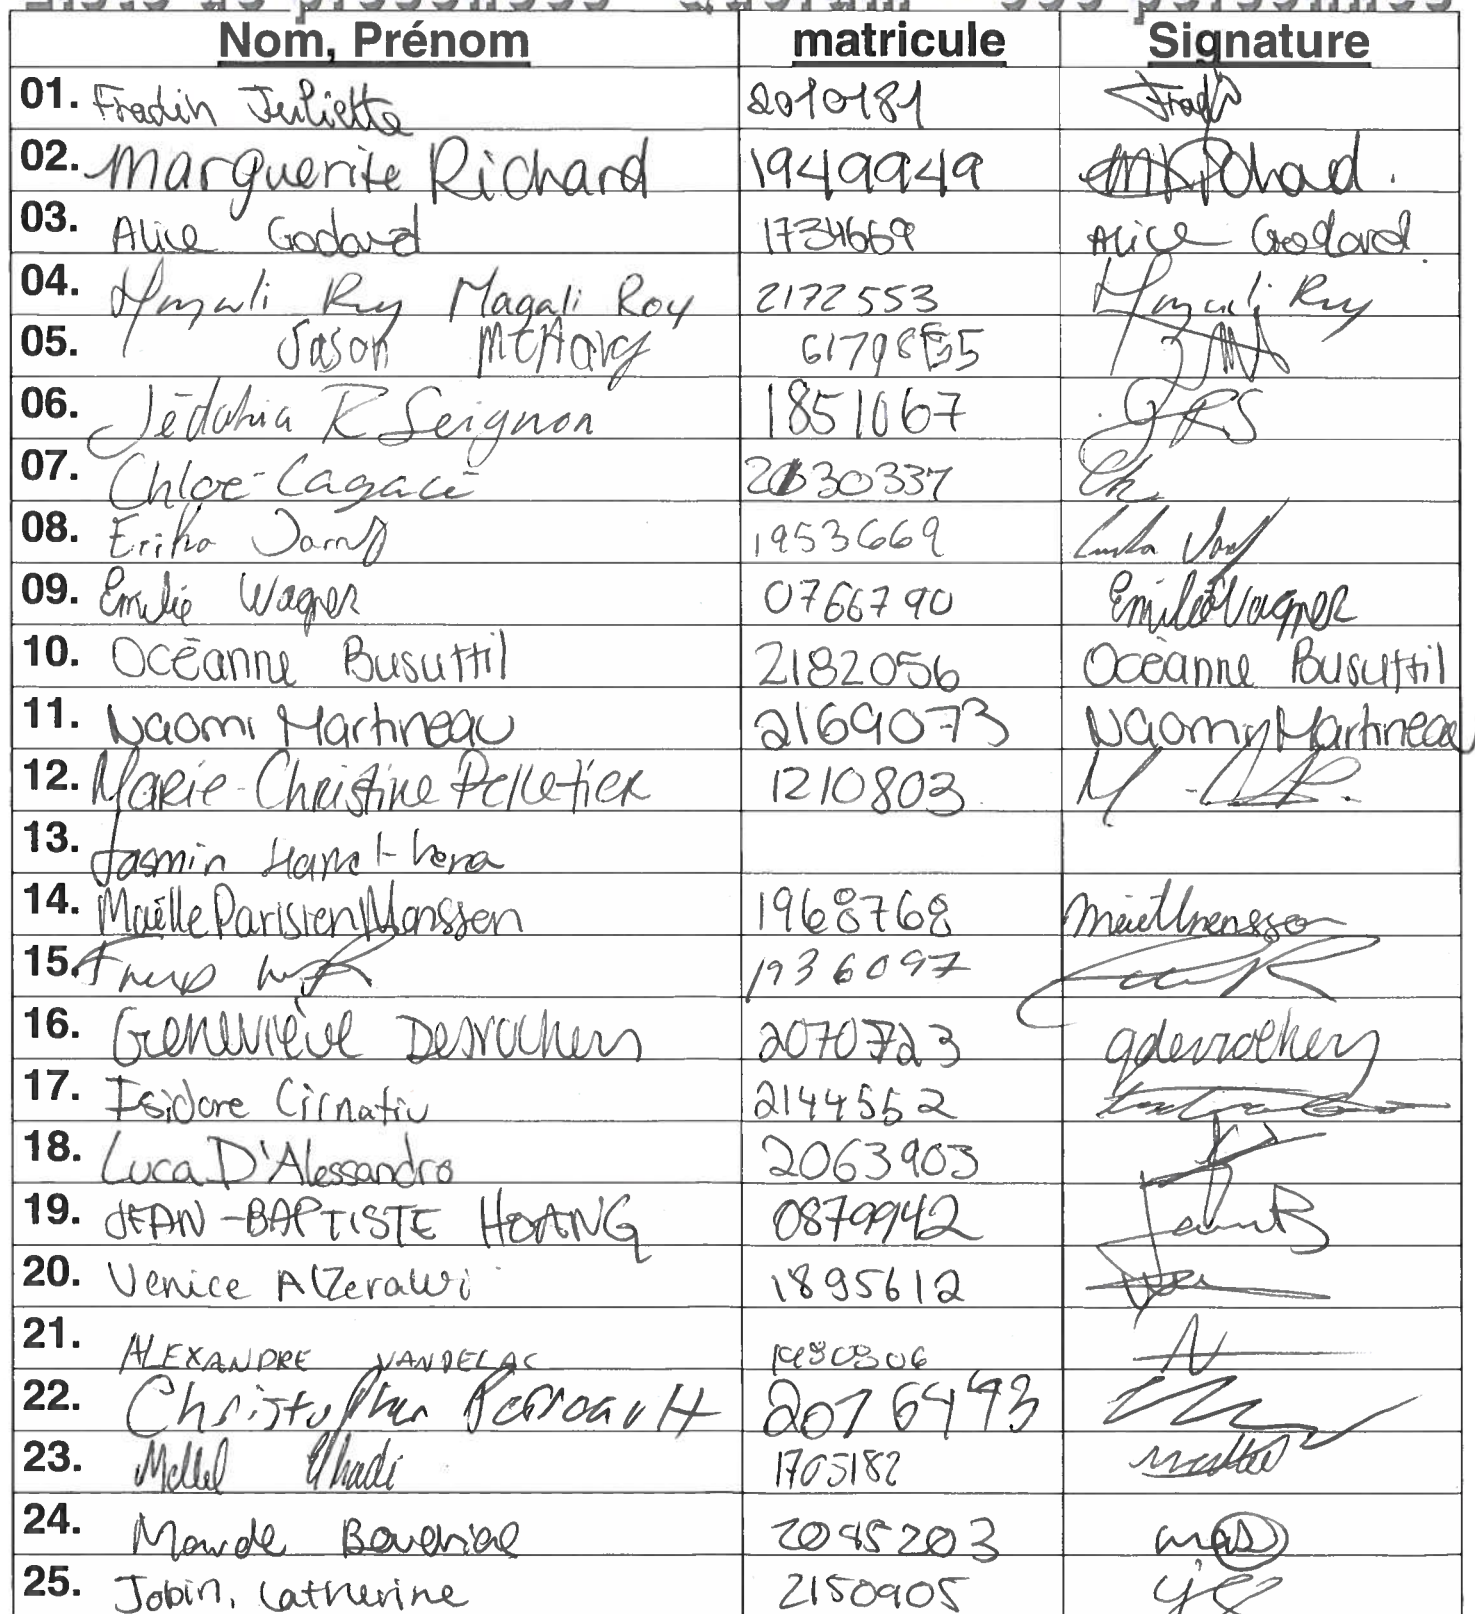 Liste de présences - Quorum
Nom, Prénom matricule Signature
01. Fradin Juliette 2010181
02. Marguerite Richard 1949949
03. Alice Godard 1734669 Alice Godard
04. Magali Roy Magali Roy 2172553 Magali Roy
05. Jason McHarg
06. Jédahia R Seignon 1851067 JRS
07. Chloé Lagacé 2030337 Ch
08. Erika 1953669 Erika
09. Emilie Wagner 0766790 Emilie Wagner
10. Océanne Busuttil 2182056 Océanne Busuttil
11. Naomi Martineau 2169073 Naomy Martineau
12. Marie-Christine Pelletier 1210803
13. Jasmin
14. Maëlle Parisien Manssen 1968768
15. 1936097
16. Geneviève Desrochers 2070723 gdesrochers
17. Isidore Cirnatiu 2144552
18. Luca D'Alessandro 2063903
19. JEAN-BAPTISTE HOANG 0879942
20. Venice AlZerawi 1895612
21. ALEXANDRE VANDELAC
22. Christopher Perreault 2016473
23. Mellel 1705182
24. Maude 2045203
25. Jobin, Catherine 2150905